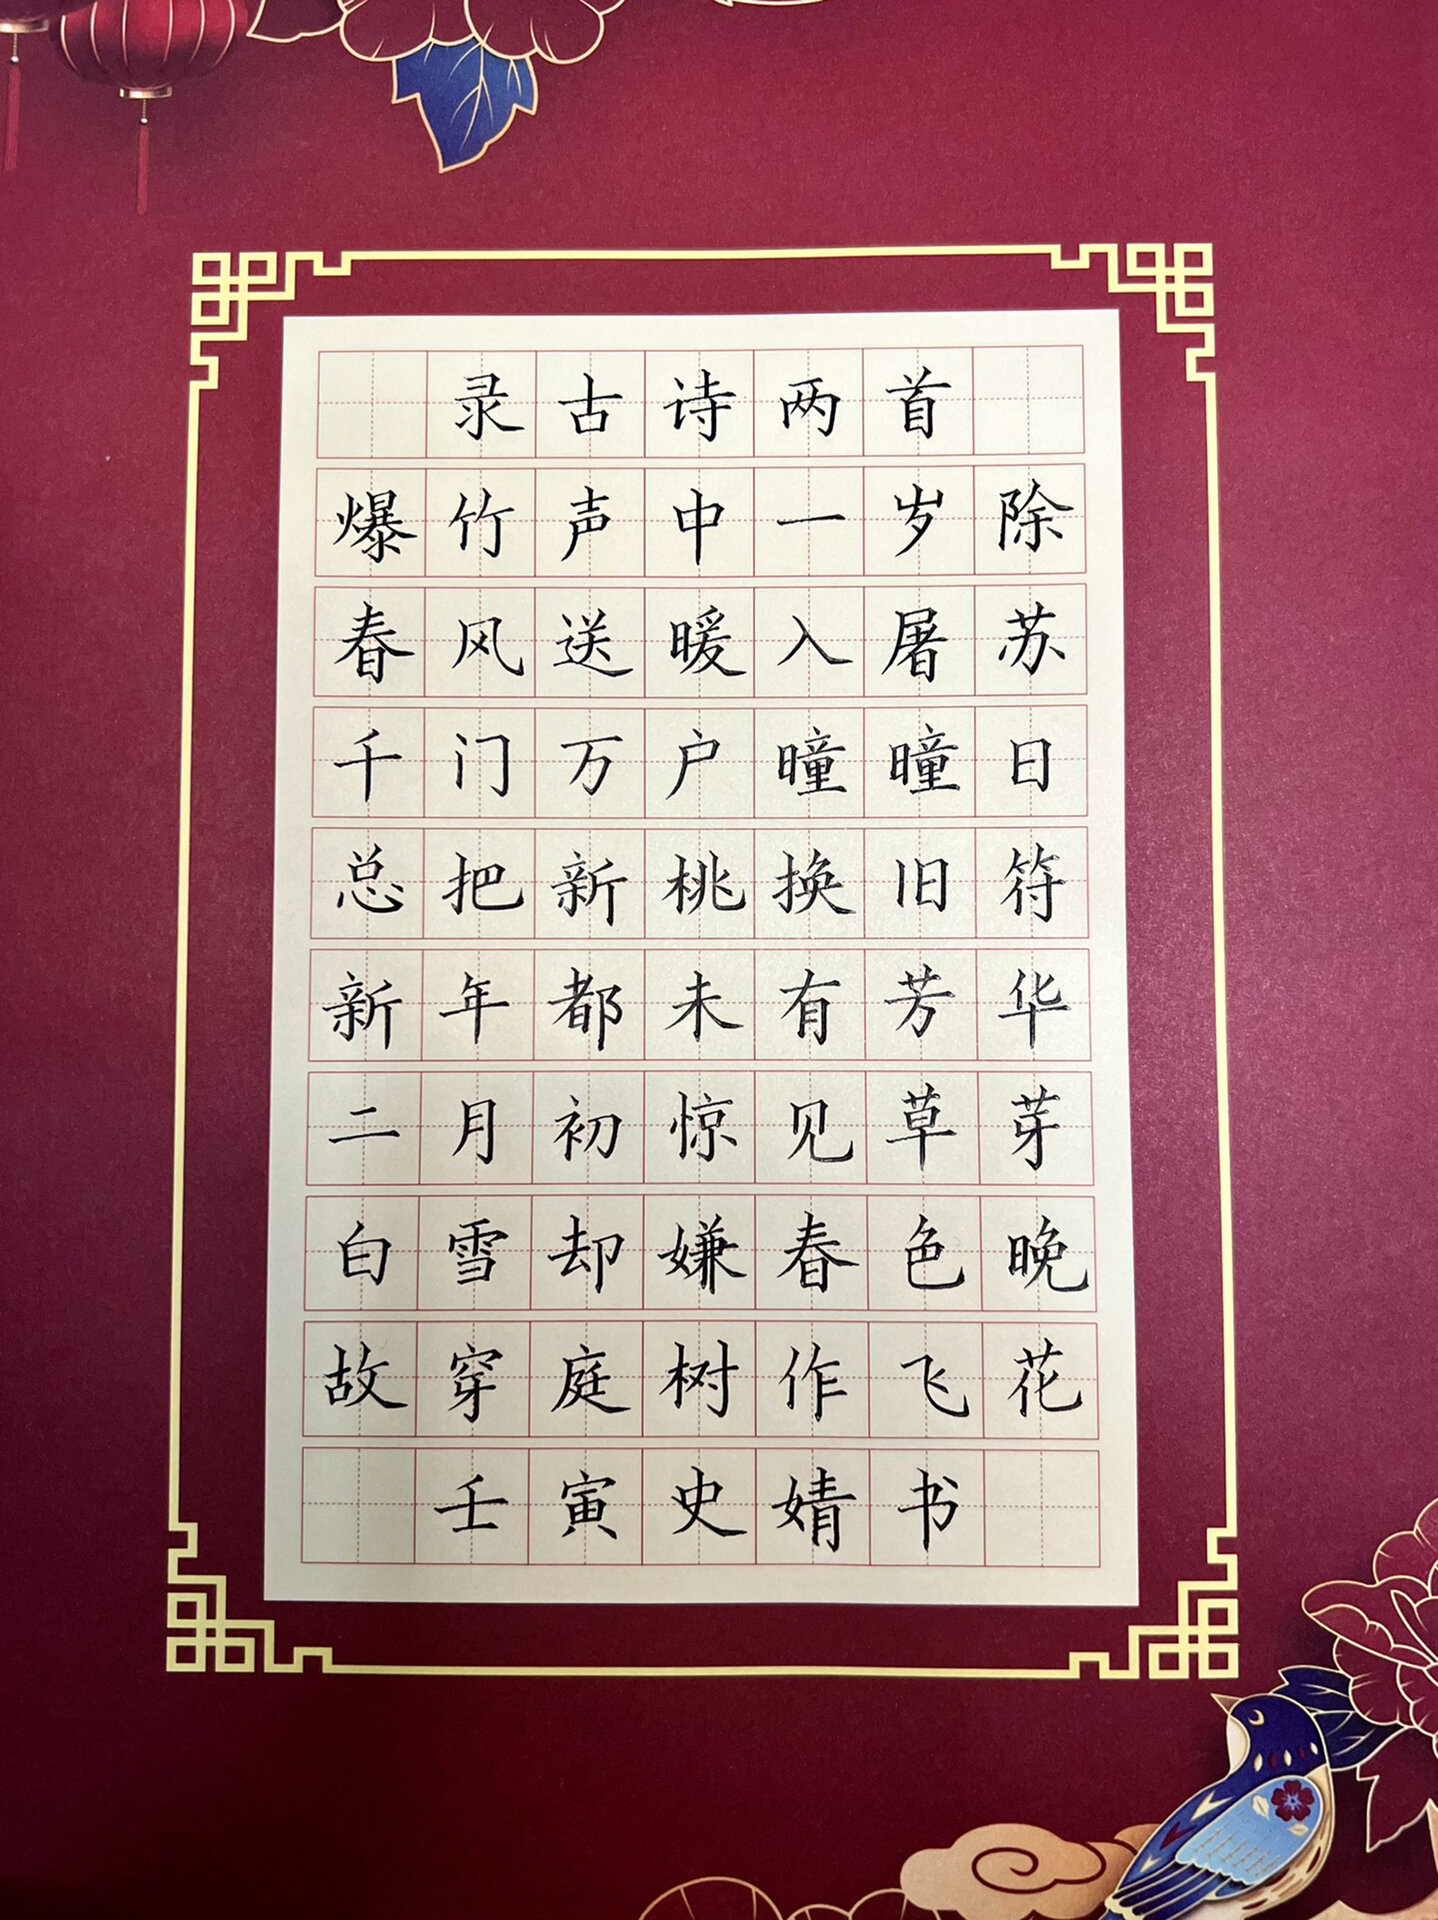 录古诗两首
爆竹声中一岁除
春风送暖入屠苏
千门万户曈曈日
总把新桃换旧符
新年都未有芳华
二月初惊见草芽
白雪却嫌春色晚
故穿庭树作飞花
壬寅史婧书